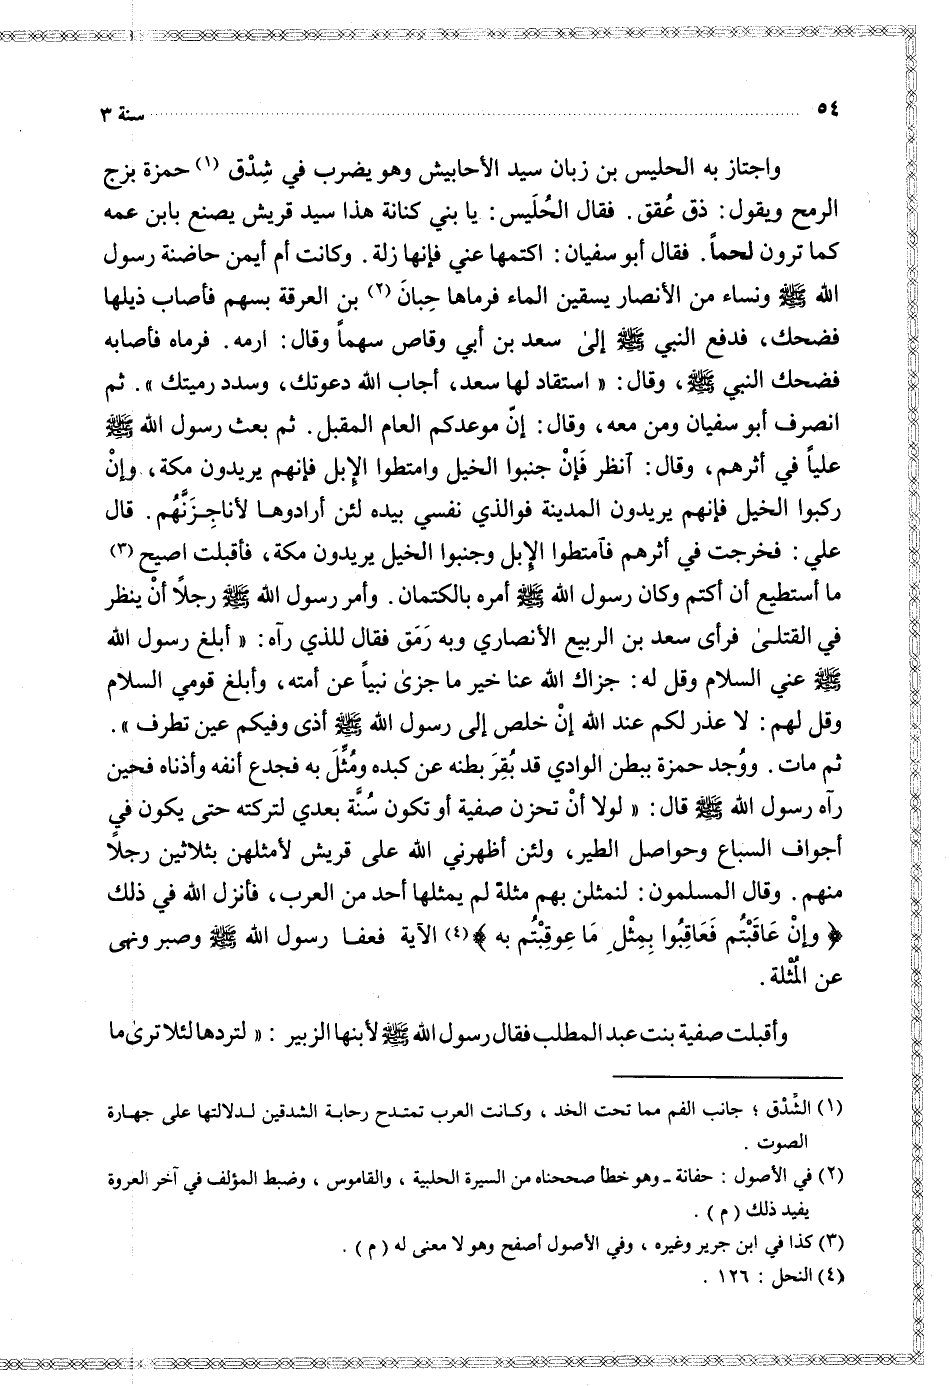 ٥٤ ........ سنة ٣
واجتاز به الحليس بن زبان سيد الأحابيش وهو يضرب في شِدْق (١) حمزة بزج
الرمح ويقول: ذق عُقق. فقال الحُلَيس: يا بني كنانة هذا سيد قريش يصنع بابن عمه
كما ترون لحماً. فقال أبو سفيان: اكتمها عني فإنها زلة. وكانت أم أيمن حاضنة رسول
الله ﷺ ونساء من الأنصار يسقين الماء فرماها حِبانَ (٢) بن العرقة بسهم فأصاب ذيلها
فضحك، فدفع النبي ﷺ إلىٰ سعد بن أبي وقاص سهماً وقال: ارمه. فرماه فأصابه
فضحك النبي ﷺ، وقال: « استقاد لها سعد، أجاب الله دعوتك، وسدد رميتك ». ثم
انصرف أبو سفيان ومن معه، وقال: إنّ موعدكم العام المقبل. ثم بعث رسول الله ﷺ
علياً في أثرهم، وقال: آنظر فَإنْ جنبوا الخيل وامتطوا الإبل فإنهم يريدون مكة، وإنْ
ركبوا الخيل فإنهم يريدون المدينة فوالذي نفسي بيده لئن أرادوها لأناجِزَنَّهُم. قال
علي: فخرجت في أثرهم فآمتطوا الإبل وجنبوا الخيل يريدون مكة، فأقبلت اصيح (٣)
ما أستطيع أن أكتم وكان رسول الله ﷺ أمره بالكتمان. وأمر رسول الله ﷺ رجلاً أنْ ينظر
في القتلىٰ فرأى سعد بن الربيع الأنصاري وبه رَمَق فقال للذي رآه: « أبلغ رسول الله
ﷺ عني السلام وقل له: جزاك الله عنا خير ما جزىٰ نبياً عن أمته، وأبلغ قومي السلام
وقل لهم: لا عذر لكم عند الله إنْ خلص إلى رسول الله ﷺ أذى وفيكم عين تطرف ».
ثم مات. ووُجد حمزة ببطن الوادي قد بُقِرَ بطنه عن كبده ومُثِّلَ به فجدع أنفه وأذناه فحين
رآه رسول الله ﷺ قال: « لولا أنْ تحزن صفية أو تكون سُنَّة بعدي لتركته حتى يكون في
أجواف السباع وحواصل الطير، ولئن أظهرني الله على قريش لأمثلهن بثلاثين رجلاً
منهم. وقال المسلمون: لنمثلن بهم مثلة لم يمثلها أحد من العرب، فأنزل الله في ذلك
﴿ وإنْ عَاقَبْتُم فَعَاقِبُوا بِمِثْلِ مَا عوقِبْتُم به ﴾(٤) الآية فعفا رسول الله ﷺ وصبر ونهى
عن المُثْلة.
وأقبلت صفية بنت عبد المطلب فقال رسول الله ﷺ لأبنها الزبير: « لتردها لئلا ترىٰ ما
(١) الشِّدْق؛ جانب الفم مما تحت الخد، وكانت العرب تمتدح رحابة الشدقين لدلالتها على جهارة
الصوت.
(٢) في الأصول: حفانة ـ وهو خطأ صححناه من السيرة الحلبية، والقاموس، وضبط المؤلف في آخر العروة
يفيد ذلك (م).
(٣) كذا في ابن جرير وغيره، وفي الأصول أصفح وهو لا معنى له (م).
(٤) النحل: ١٢٦.